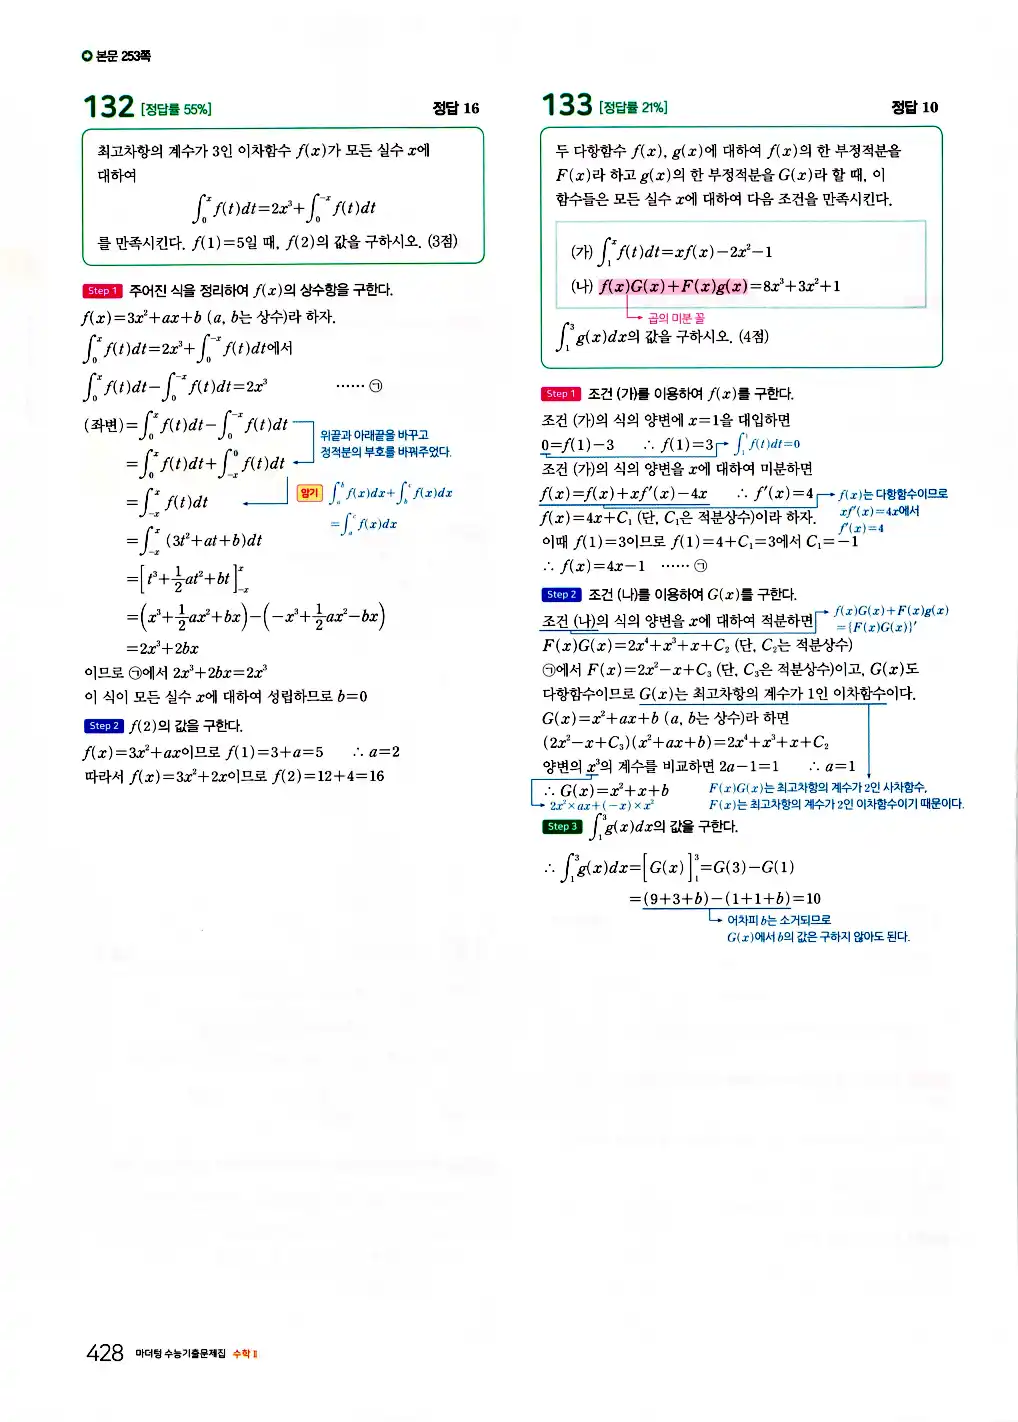 본문 253쪽
132 [정답률 55%] 정답 16
최고차항의 계수가 3인 이차함수 f(x)가 모든 실수 x에
대하여
∫₀ˣ f(t)dt=2x³+∫₀⁻ˣ f(t)dt
를 만족시킨다. f(1)=5일 때, f(2)의 값을 구하시오. (3점)
Step 1 주어진 식을 정리하여 f(x)의 상수항을 구한다.
f(x)=3x²+ax+b (a, b는 상수)라 하자.
∫₀ˣ f(t)dt=2x³+∫₀⁻ˣ f(t)dt에서
∫₀ˣ f(t)dt-∫₀⁻ˣ f(t)dt=2x³ ······ ㉠
(좌변)=∫₀ˣ f(t)dt-∫₀⁻ˣ f(t)dt
위끝과 아래끝을 바꾸고
정적분의 부호를 바꿔주었다.
=∫₀ˣ f(t)dt+∫₋ₓ⁰ f(t)dt
=∫₋ₓˣ f(t)dt
암기 ∫ₐᵇ f(x)dx+∫ᵇᶜ f(x)dx
=∫ₐᶜ f(x)dx
=∫₋ₓˣ (3t²+at+b)dt
=[t³+½at²+bt]₋ₓˣ
=(x³+½ax²+bx)-(-x³+½ax²-bx)
=2x³+2bx
이므로 ㉠에서 2x³+2bx=2x³
이 식이 모든 실수 x에 대하여 성립하므로 b=0
Step 2 f(2)의 값을 구한다.
f(x)=3x²+ax이므로 f(1)=3+a=5 ∴ a=2
따라서 f(x)=3x²+2x이므로 f(2)=12+4=16
133 [정답률 21%] 정답 10
두 다항함수 f(x), g(x)에 대하여 f(x)의 한 부정적분을
F(x)라 하고 g(x)의 한 부정적분을 G(x)라 할 때, 이
함수들은 모든 실수 x에 대하여 다음 조건을 만족시킨다.
(가) ∫₁ˣ f(t)dt=xf(x)-2x²-1
(나) f(x)G(x)+F(x)g(x)=8x³+3x²+1
곱의 미분 꼴
∫₁³ g(x)dx의 값을 구하시오. (4점)
Step 1 조건 (가)를 이용하여 f(x)를 구한다.
조건 (가)의 식의 양변에 x=1을 대입하면
0=f(1)-3 ∴ f(1)=3
∫₁¹ f(t)dt=0
조건 (가)의 식의 양변을 x에 대하여 미분하면
f(x)=f(x)+xf′(x)-4x ∴ f′(x)=4
f(x)는 다항함수이므로
xf′(x)=4x에서
f′(x)=4
f(x)=4x+C₁ (단, C₁은 적분상수)이라 하자.
이때 f(1)=3이므로 f(1)=4+C₁=3에서 C₁=-1
∴ f(x)=4x-1 ······ ㉠
Step 2 조건 (나)를 이용하여 G(x)를 구한다.
조건 (나)의 식의 양변을 x에 대하여 적분하면
f(x)G(x)+F(x)g(x)
={F(x)G(x)}′
F(x)G(x)=2x⁴+x³+x+C₂ (단, C₂는 적분상수)
㉠에서 F(x)=2x²-x+C₃ (단, C₃은 적분상수)이고, G(x)도
다항함수이므로 G(x)는 최고차항의 계수가 1인 이차함수이다.
G(x)=x²+ax+b (a, b는 상수)라 하면
(2x²-x+C₃)(x²+ax+b)=2x⁴+x³+x+C₂
양변의 x³의 계수를 비교하면 2a-1=1 ∴ a=1
∴ G(x)=x²+x+b
2x²×ax+(-x)×x²
F(x)G(x)는 최고차항의 계수가 2인 사차함수,
F(x)는 최고차항의 계수가 2인 이차함수이기 때문이다.
Step 3 ∫₁³ g(x)dx의 값을 구한다.
∴ ∫₁³ g(x)dx=[G(x)]₁³=G(3)-G(1)
=(9+3+b)-(1+1+b)=10
어차피 b는 소거되므로
G(x)에서 b의 값은 구하지 않아도 된다.
428 마더텅 수능기출문제집 수학 II